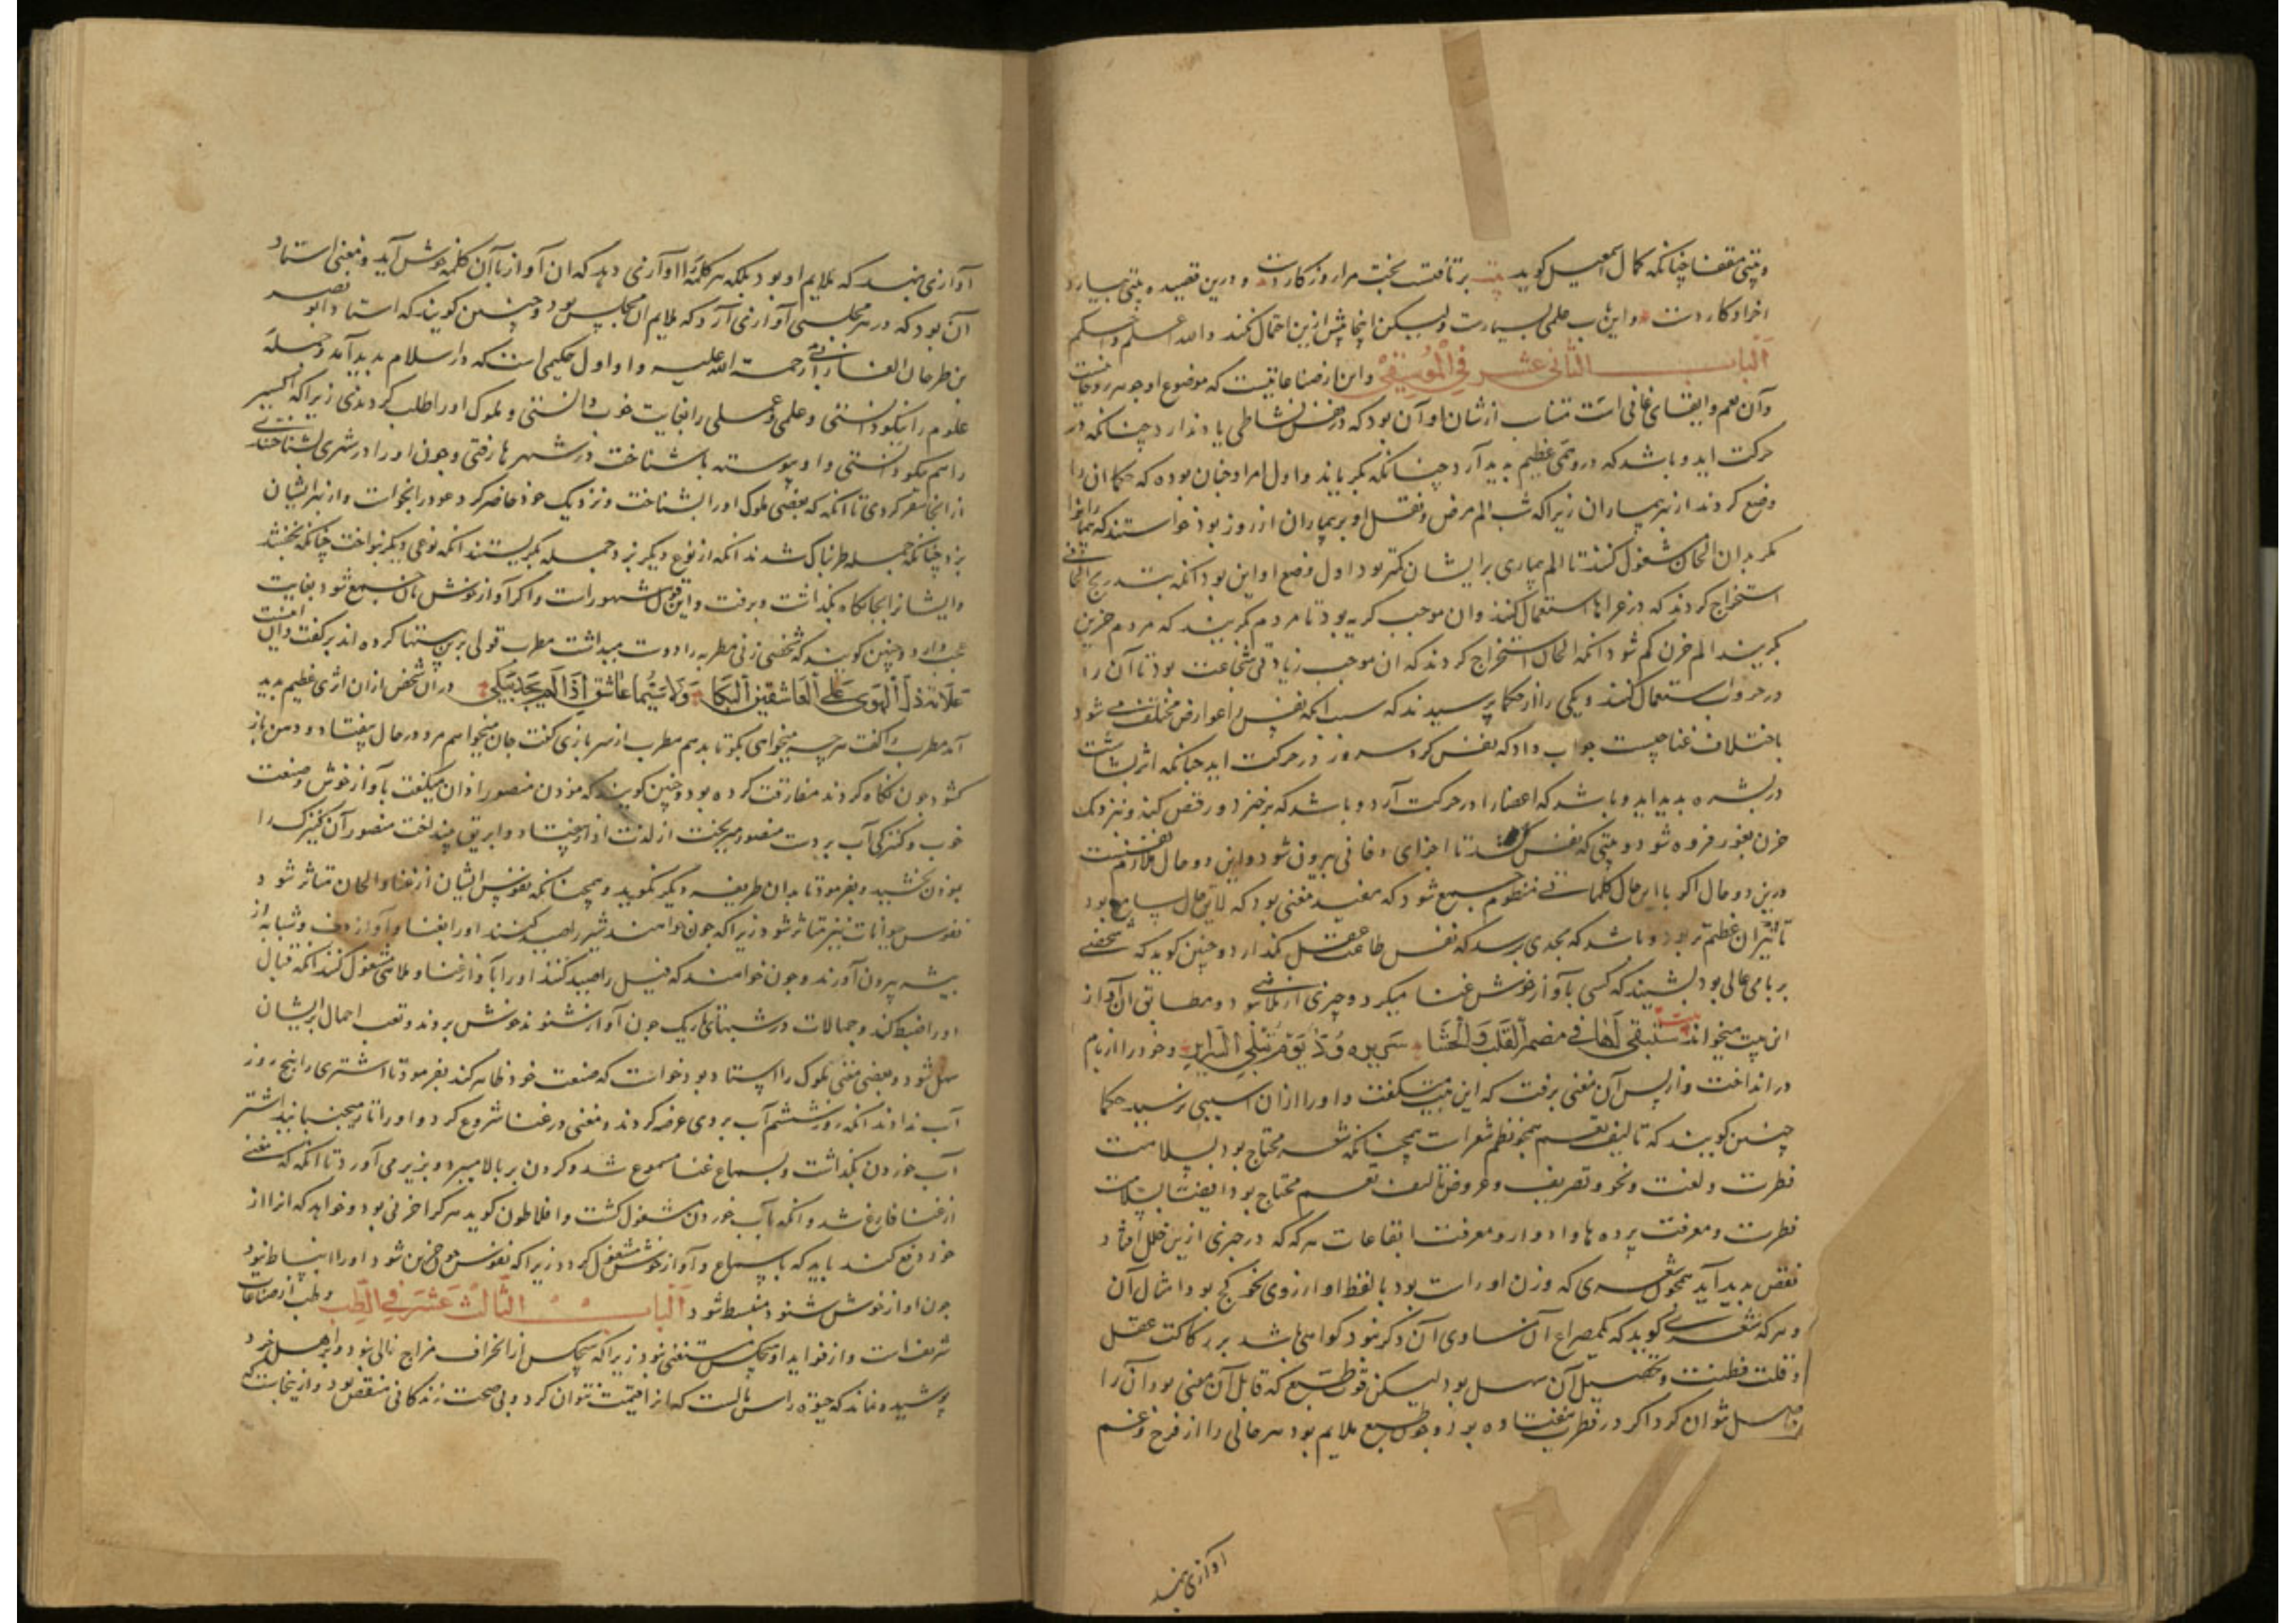 و بیتی مقفا چنانکه کمال اسمعیل کوید بیت برتافت بخت مرا روزکار دست و درین قصیده بیتی بسیار
اخر او کار دست و این باب علمی بسیارست ولیکن اینجا بیش ازین احتمال نکند والله اعلم واحکم
الباب الثانی عشر فی الموسیقی و این از صناعاتیست که موضوع او جوهر روحانیت
و آن نغم و ایقاعاتی است متناسب از شان او آن بود که در نفس نشاطی یا
حرکت اید و باشد که درو غمی عظیم بدید آرد چنانکه بکریاند و اول امر او چنان بوده که حکما ان را
وضع کردند از بهر بیماران زیرا که شب الم مرض و ثقل او بر بیماران از روز بود خواستند که بیمار را
مکر بدان الحان مشغول کنند تا الم بیماری بر ایشان کمتر بود اول وضع او این بود انکه بتدریج الحانی
استخراج کردند که در عزاها استعمال کنند وان موجب کریه بود تا مردم بکریند که مردم حزین
بکریند الم حزن کم شود انکه الحان استخراج کردند که ان موجب زیادتی شجاعت بود تا آن را
در حروب استعمال کنند و یکی را از حکما پرسیدند که سبب انکه نفس را عوارض مختلف می شود
باختلاف غنا چیست جواب داد که نفس کرد سرور در حرکت اید چنانکه اثر بشاشت
در بشره بدید اید و باشد که اعضا را در حرکت آرد و باشد که برخیزد و رقص کند و نزدیک
حزن بغور فرو شود و بیتی که نفس تا اجزای دخانی بیرون شود و این دو حال ملازم نفسست
درین دو حال اکر با این حال کلماتی منظوم جمع شود که مفید معنی بود که لایق حال سامع بود
تاثیر ان عظیم تر بود و باشد که بحدی برسد که نفس طاعت عقل بکذارد و چنین کوید که شخصی
بر بامی عالی بود بشنید که کسی بآواز خوش غنا میکرد و چیزی از ملاهی و مطابق ان آواز
این بیت میخواند بیت ستبقی لها فی مضمر القلب والحشا سریرة ود یوم تبلی السرایر و خود را از بام
در انداخت و از پس آن مغنی برفت که این بیت میکفت و او را ازان اسیبی نرسید حکما
چنین کویند که تالیف نغم همچو نظم شعرات همچنانکه شعر محتاج بود بسلامت
فطرت و لغت و نحو و تصریف و عروض تالیف نغم محتاج بود ایضا بسلامت
فطرت و معرفت پرده ها و ادوار و معرفت ایقاعات هرکه که در چیزی ازین خلل افتاد
نقص بدید آید همچون شعری که وزن او راست بود با لفظ او از روی نحو کج بود و امثال آن
و هرکه شعری کوید که یکمصراع آن مساوی آن دکر نبود کواهی باشد بر رکاکت عقل
و قلت فطنت و تحصیل آن سهل بود لیکن قوت طبع که قابل آن معنی بود آن را
حاصل نتوان کرد اکر در فطرت نیفتاده بود و چون طبع ملایم بود هر حالی را از فرح و غم
آوازی نهند
آوازی نهند که ملایم او بود بلکه هر کلمه را آوازی دهد که ان آواز با آن کلمه خوش آید و مغنی استاد
آن بود که در هر مجلسی آوازی آرد که ملایم ان مجلس بود و چنین کویند که استاد ابو نصر
بن طرخان الفارابی رحمة الله علیه و او اول حکیمی است که در اسلام بدید آمد و جمله
علوم را نیکو دانستی و علمی و عملی را بغایت خوب دانستی و ملوک او را طلب کردندی زیرا که اکسیر
را هم نیکو دانستی و او پیوسته ناشناخت در شهرها رفتی و چون او را در شهری بشناختندی
از انجا سفر کردی تا انکه که بعضی ملوک او را بشناخت و نزدیک خود حاضر کرد عود را بخواست و از بهر ایشان
بزد چنانکه جمله طربناک شدند انکه از نوع دیکر بزد جمله بکریستند انکه نوعی دیکر بنواخت چنانکه بخفتند
و ایشان را بجایکاه بکذاشت و برفت و این قول مشهورات و اکر آواز خوش با آن جمع شود بغایت
عجب دارد و چنین کویند که شخصی زنی مطربه را دوست میداشت مطرب قولی برین بیتها کرده اند برکفت و آن اینست
علامة ذل الهوی علی العاشقین البکا ولا سیما عاشق اذا لم یجد یبکی و در آن شخص ازان اثری عظیم بدید
آمد مطرب را کفت هرچه میخواهی بکو تا بدهم مطرب از سر بازی کفت جان میخواهم مرد در حال بیفتاد و دهن باز
کشود چون نکاه کردند مفارقت کرده بود و چنین کویند که موذن منصور اذان میکفت بآواز خوش و صنعت
خوب و کنیزکی آب بر دست منصور میریخت از لذت اذان و ابریق بینداخت منصور آن کنیزک را
بموذن بخشید و بفرمود تا بدان طریق دیکر نکوید و همچنانکه نفوس انسان از غنا و الحان متاثر شود
نفوس حیوانات نیز متاثر شود زیرا که چون خواهند شیر را صید کنند او را بغنا و آواز دف و شبابه از
بیشه بیرون آورند و چون خواهند که فیل را صید کنند او را بآواز غنا و ملاهی مشغول کنند انکه فیال
او را ضبط کند و جمالات در شبهای تاریک چون آواز شنوند خوش بروند و تعب احمال بر ایشان
سهل شود و بعضی مغنی ملوک را استاد بود خواست که صنعت خود ظاهر کند بفرمود تا اشتری را پنج روز
آب ندادند انکه روز ششم آب بر وی عرضه کردند و مغنی در غنا شروع کرد و اوتار میجنبانید اشتر
آب خوردن بکذاشت و بسماع غنا مسموع شد و کردن بر بالا میبرد و بزیر می آورد تا انکه که مغنی
از غنا فارغ شد و انکه بآب خوردن مشغول کشت و افلاطون کوید هرکرا حزنی بود و خواهد که انرا از
خود دفع کند باید که بسماع و آواز خوش مشغول کردد زیرا که نفوس چون حزین شود او را انبساط نبود
چون اواز خوش شنود منبسط شود الباب الثالث عشر فی الطب و طب از صناعات
شریف است و از فواید او هیچکس مستغنی نبود زیرا که هیچکس از انحراف مزاج خالی نبود و بر اهل خرد
پوشیده نماند که حیوة راس مالیست که انرا قیمت نتوان کرد و بی صحت زندکانی منغص بود و ازینجاست که